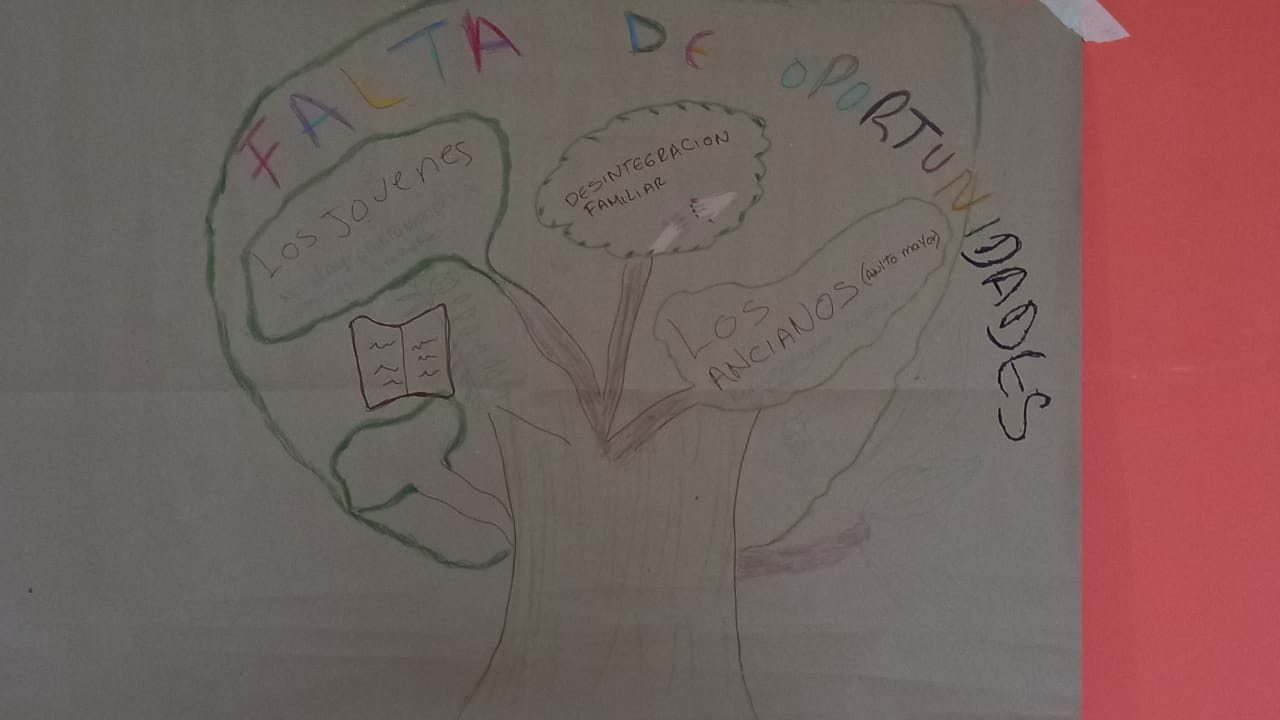 FALTA DE OPORTUNIDADES
LOS JOVENES
DESINTEGRACION
FAMILIAR
LOS
ANCIANOS (